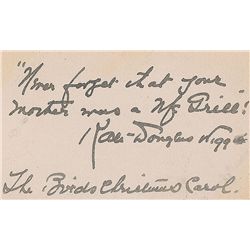 "Never forget that your
mother was a Mc Grill!"
Kate Douglas Wiggin
The Birds' Christmas Carol.